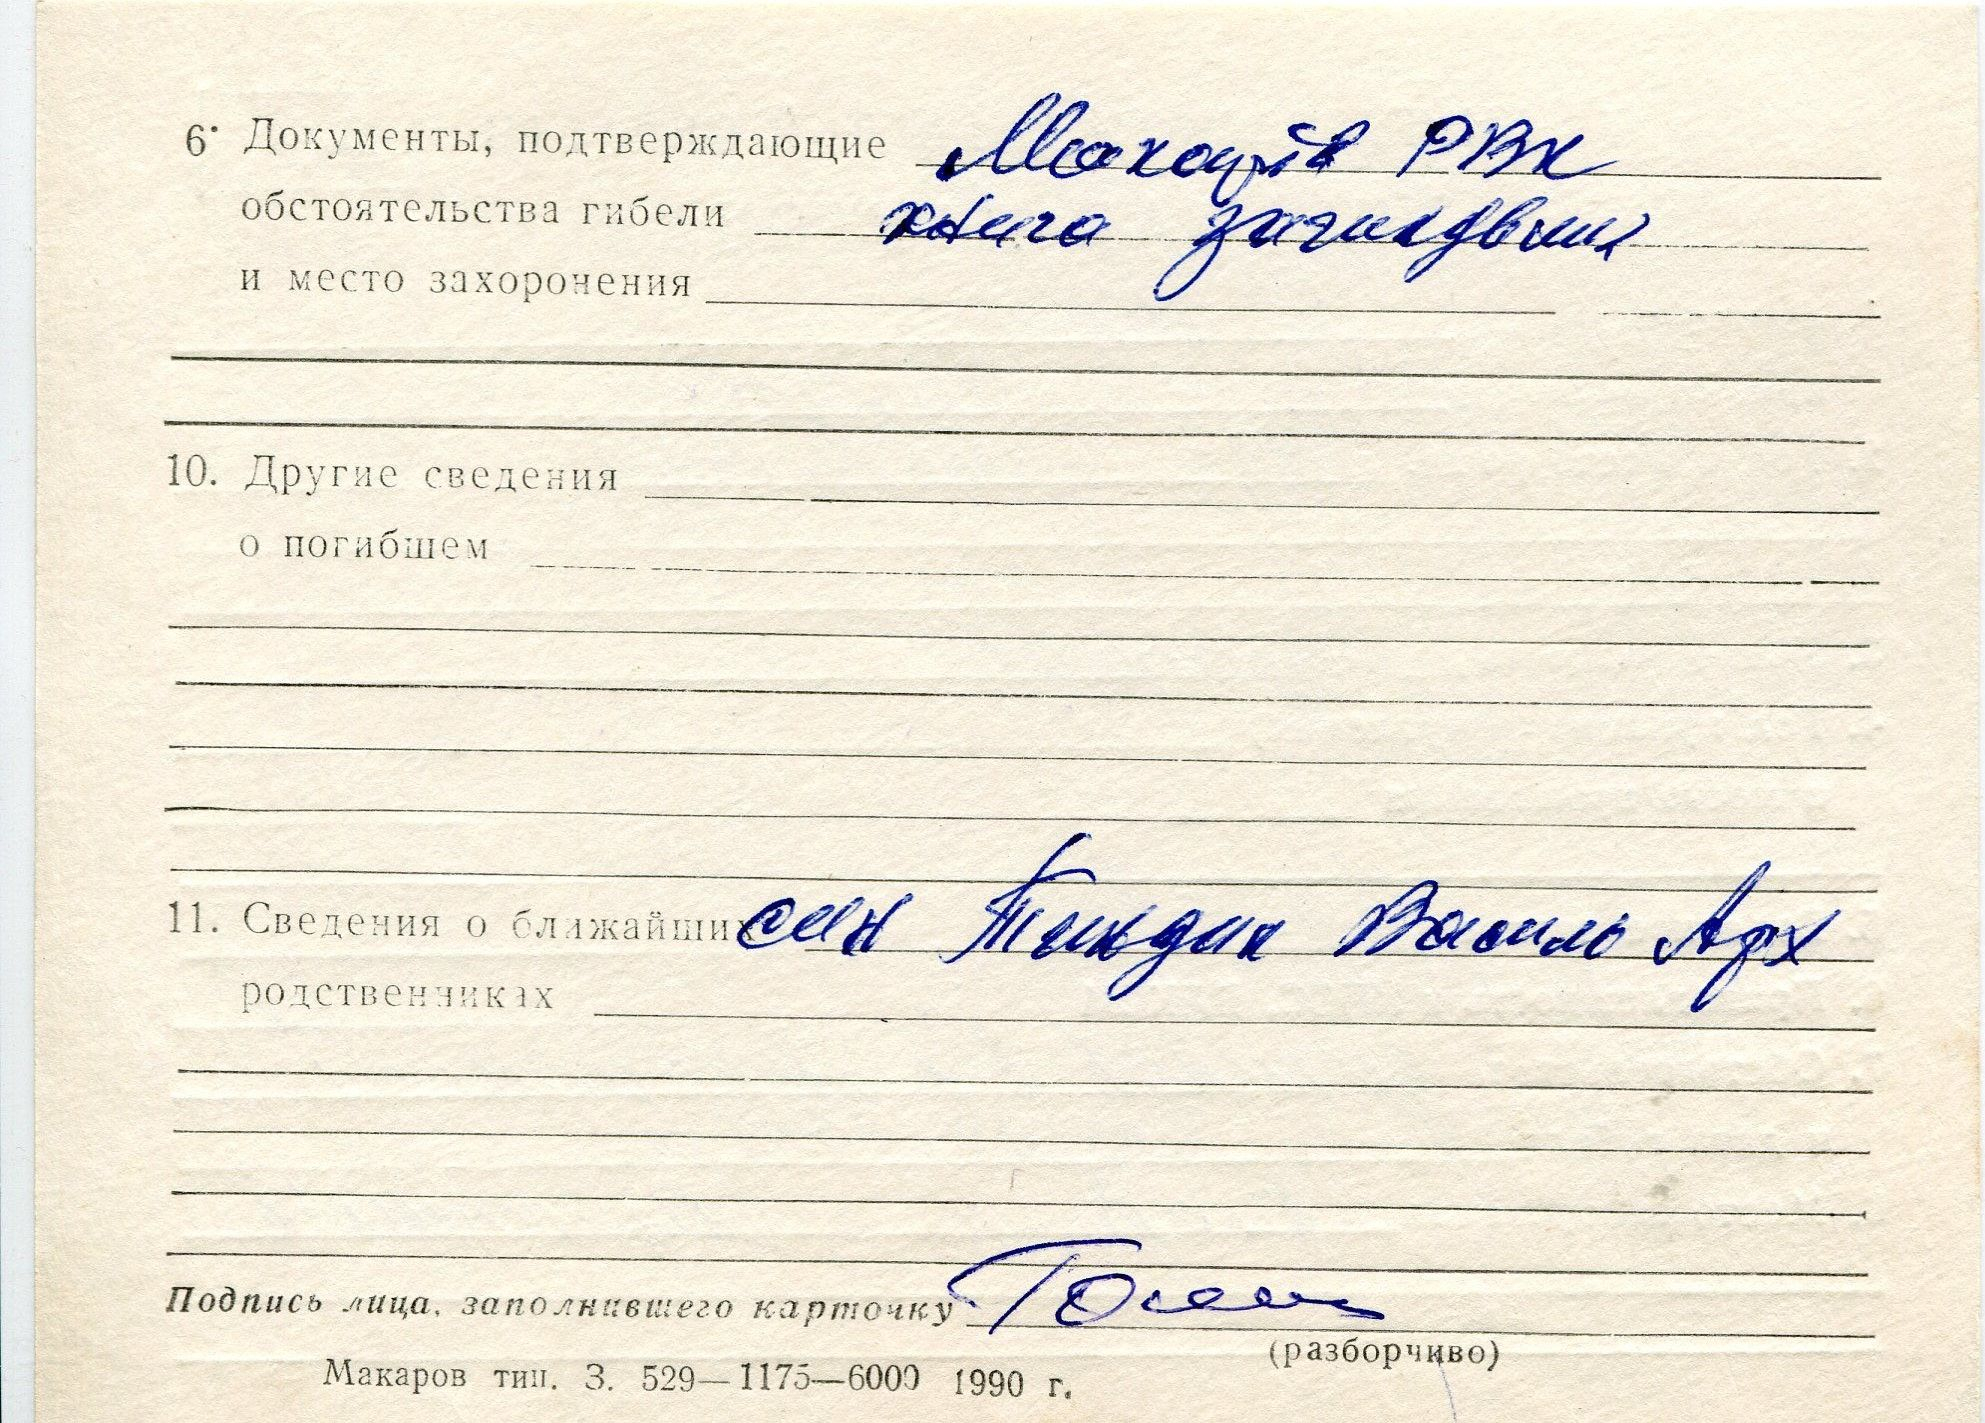 6. Документы, подтверждающие РВК
обстоятельства гибели книга
и место захоронения
10. Другие сведения
о погибшем
11. Сведения о ближайших син Василь Арх
родственниках
Подпись лица, заполнившего карточку
(разборчиво)
Макаров тип. З. 529—1175—6000 1990 г.